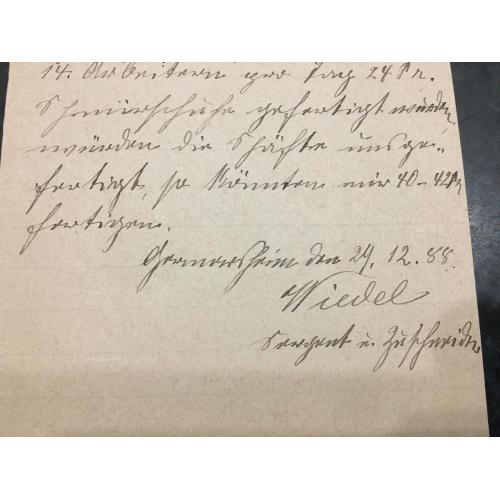 14. Arbeitern pro Tag 24 Pr.
Schnürschuhe gefertigt wurden,
würden die Schäfte
fertigt, so könnten wir 40-42 Pr
fertigen.
Germersheim den 29. 12. 88.
Wiedel
Sergent u. Zuschneider